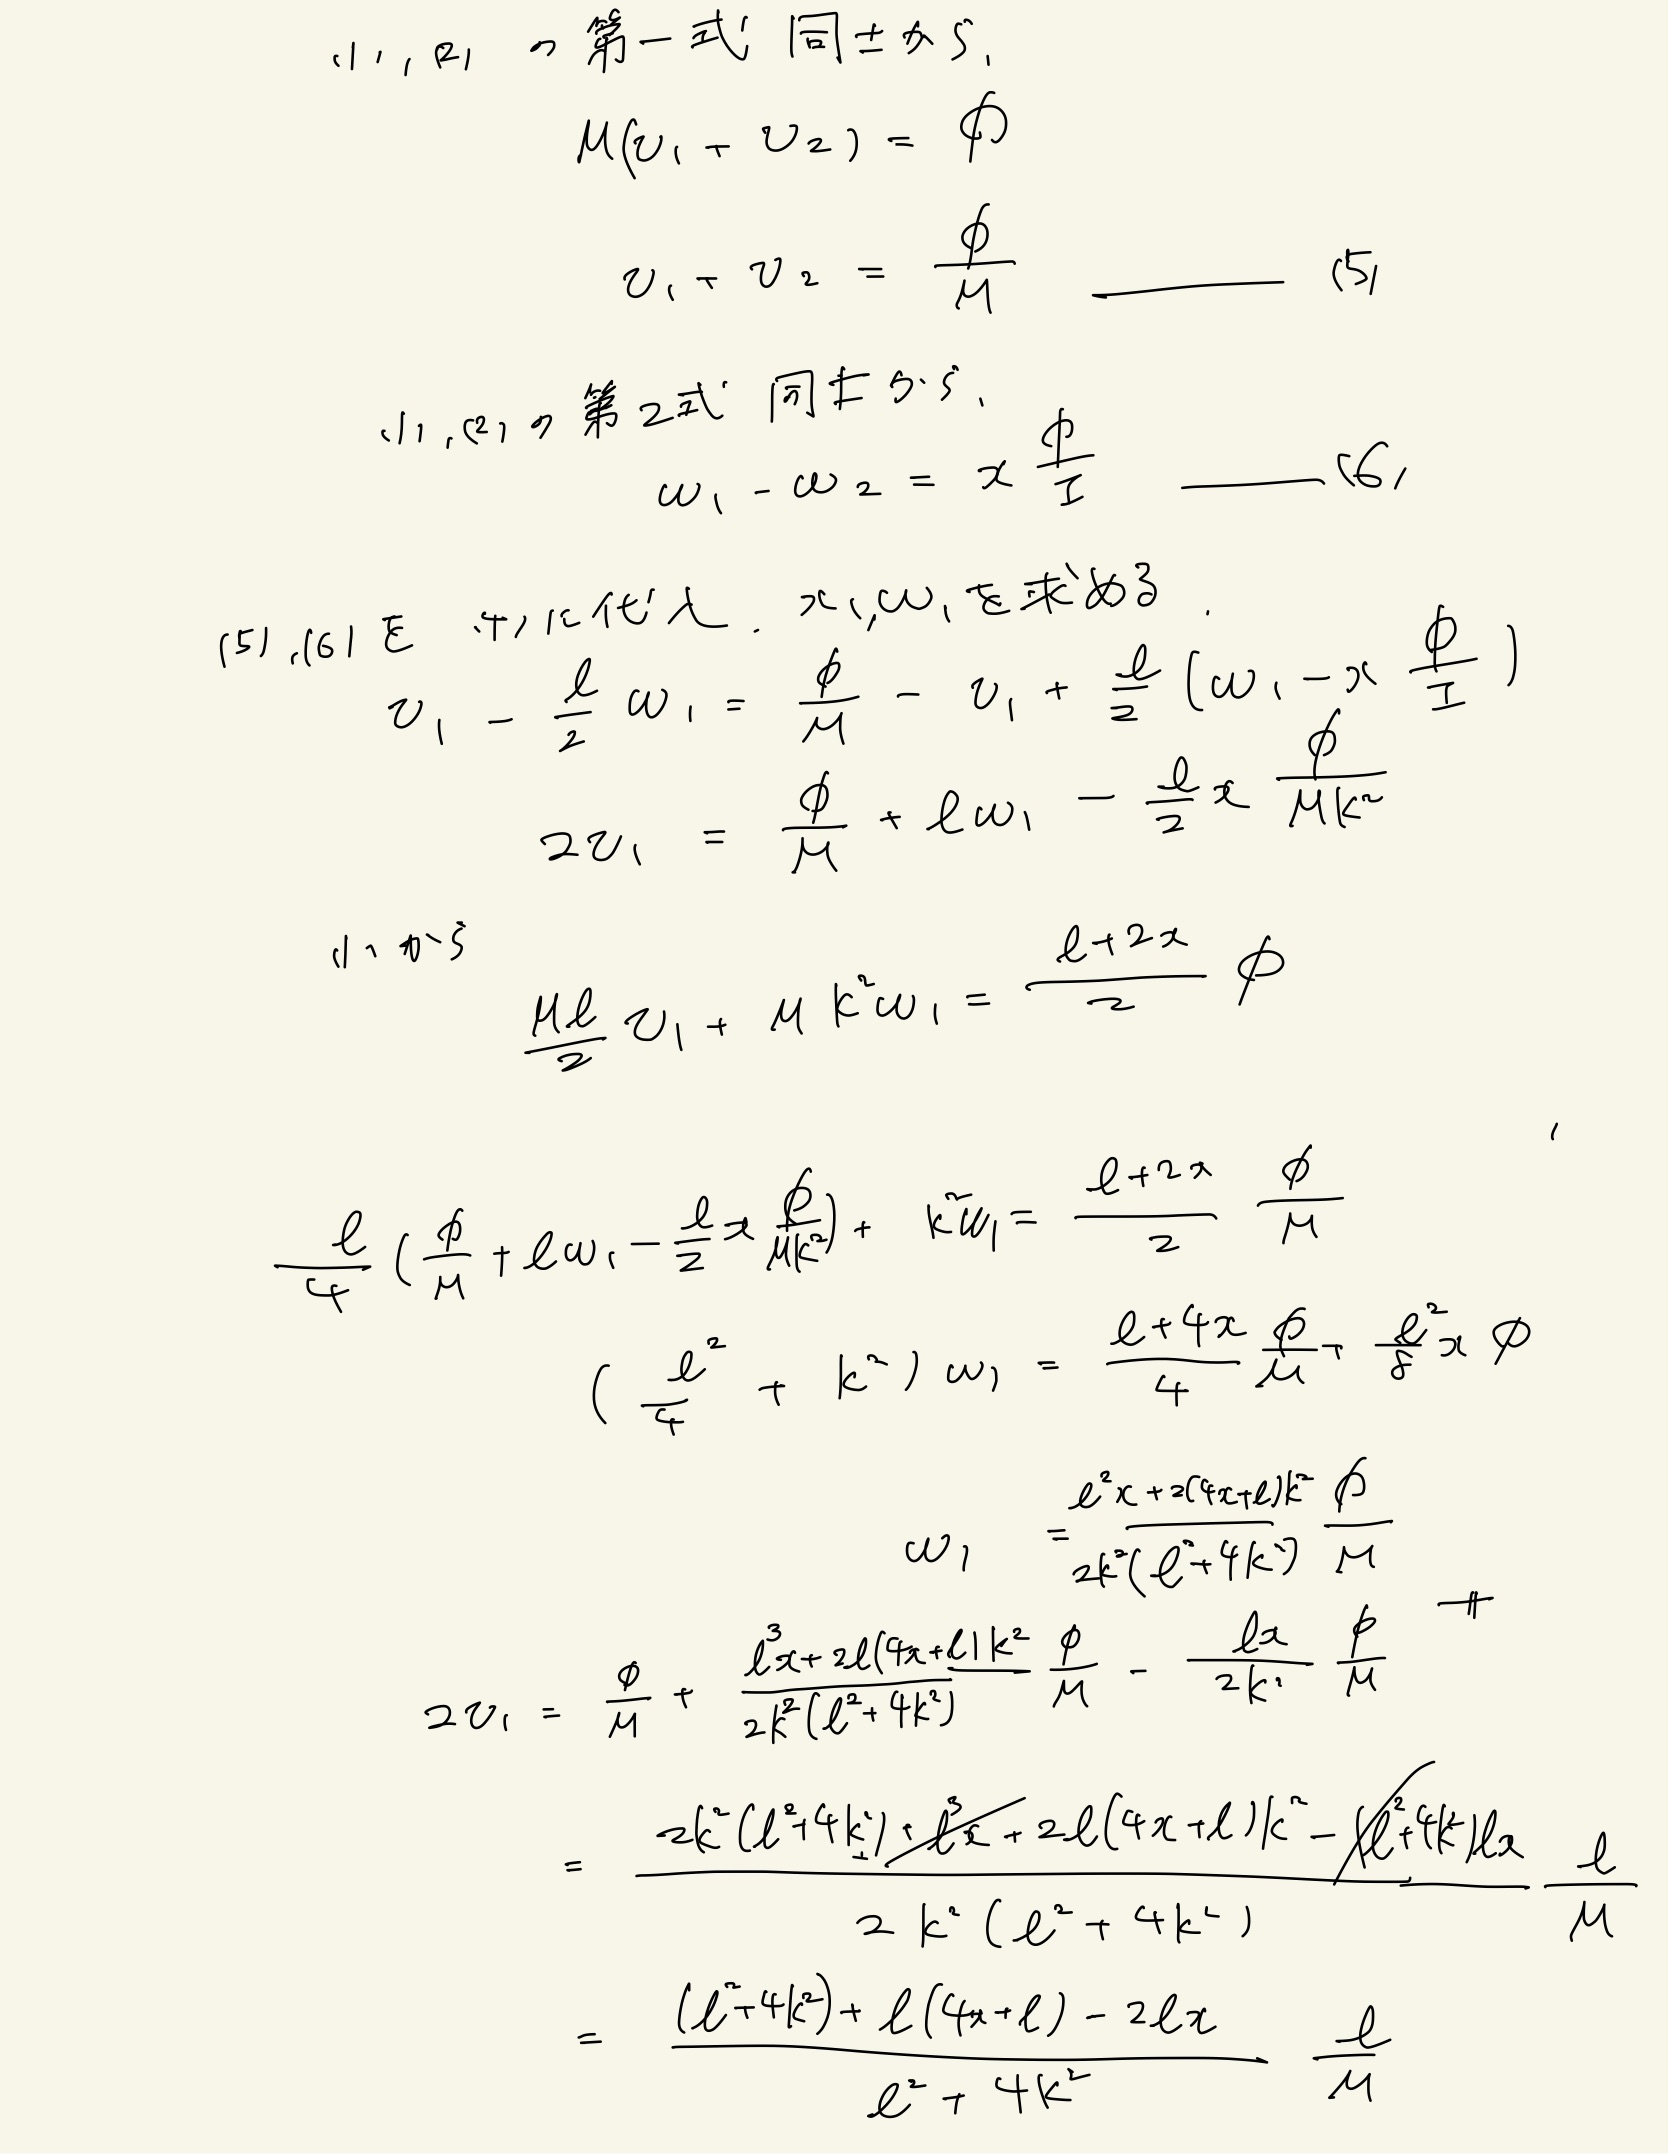 (1), (2) の第一式同士から、
M(v₁ + v₂) = ϕ
v₁ + v₂ = ϕ/M ——— (5)
(1), (2) の第2式同士から、
ω₁ - ω₂ = x ϕ/I ——— (6)
(5), (6) を (4) に代入. x₁, ω₁ を求める.
v₁ - l/2 ω₁ = ϕ/M - v₁ + l/2 (ω₁ - x ϕ/I)
2v₁ = ϕ/M + lω₁ - l/2 x ϕ/Mk²
(1) から
Ml/2 v₁ + M k²ω₁ = (l+2x)/2 ϕ
l/4 (ϕ/M + lω₁ - l/2 x ϕ/Mk²) + k²ω₁ = (l+2x)/2 ϕ/M
(l²/4 + k²) ω₁ = (l+4x)/4 ϕ/M + l²/8 x ϕ
ω₁ = (l²x + 2(4x+l)k²)/(2k²(l²+4k²)) ϕ/M
2v₁ = ϕ/M + (l³x + 2l(4x+l)k²)/(2k²(l²+4k²)) ϕ/M - lx/2k² ϕ/M
= (2k²(l²+4k²) + l³x + 2l(4x+l)k² - (l²+4k²)lx)/(2k²(l²+4k²)) l/M
= ((l²+4k²) + l(4x+l) - 2lx)/(l²+4k²) l/M